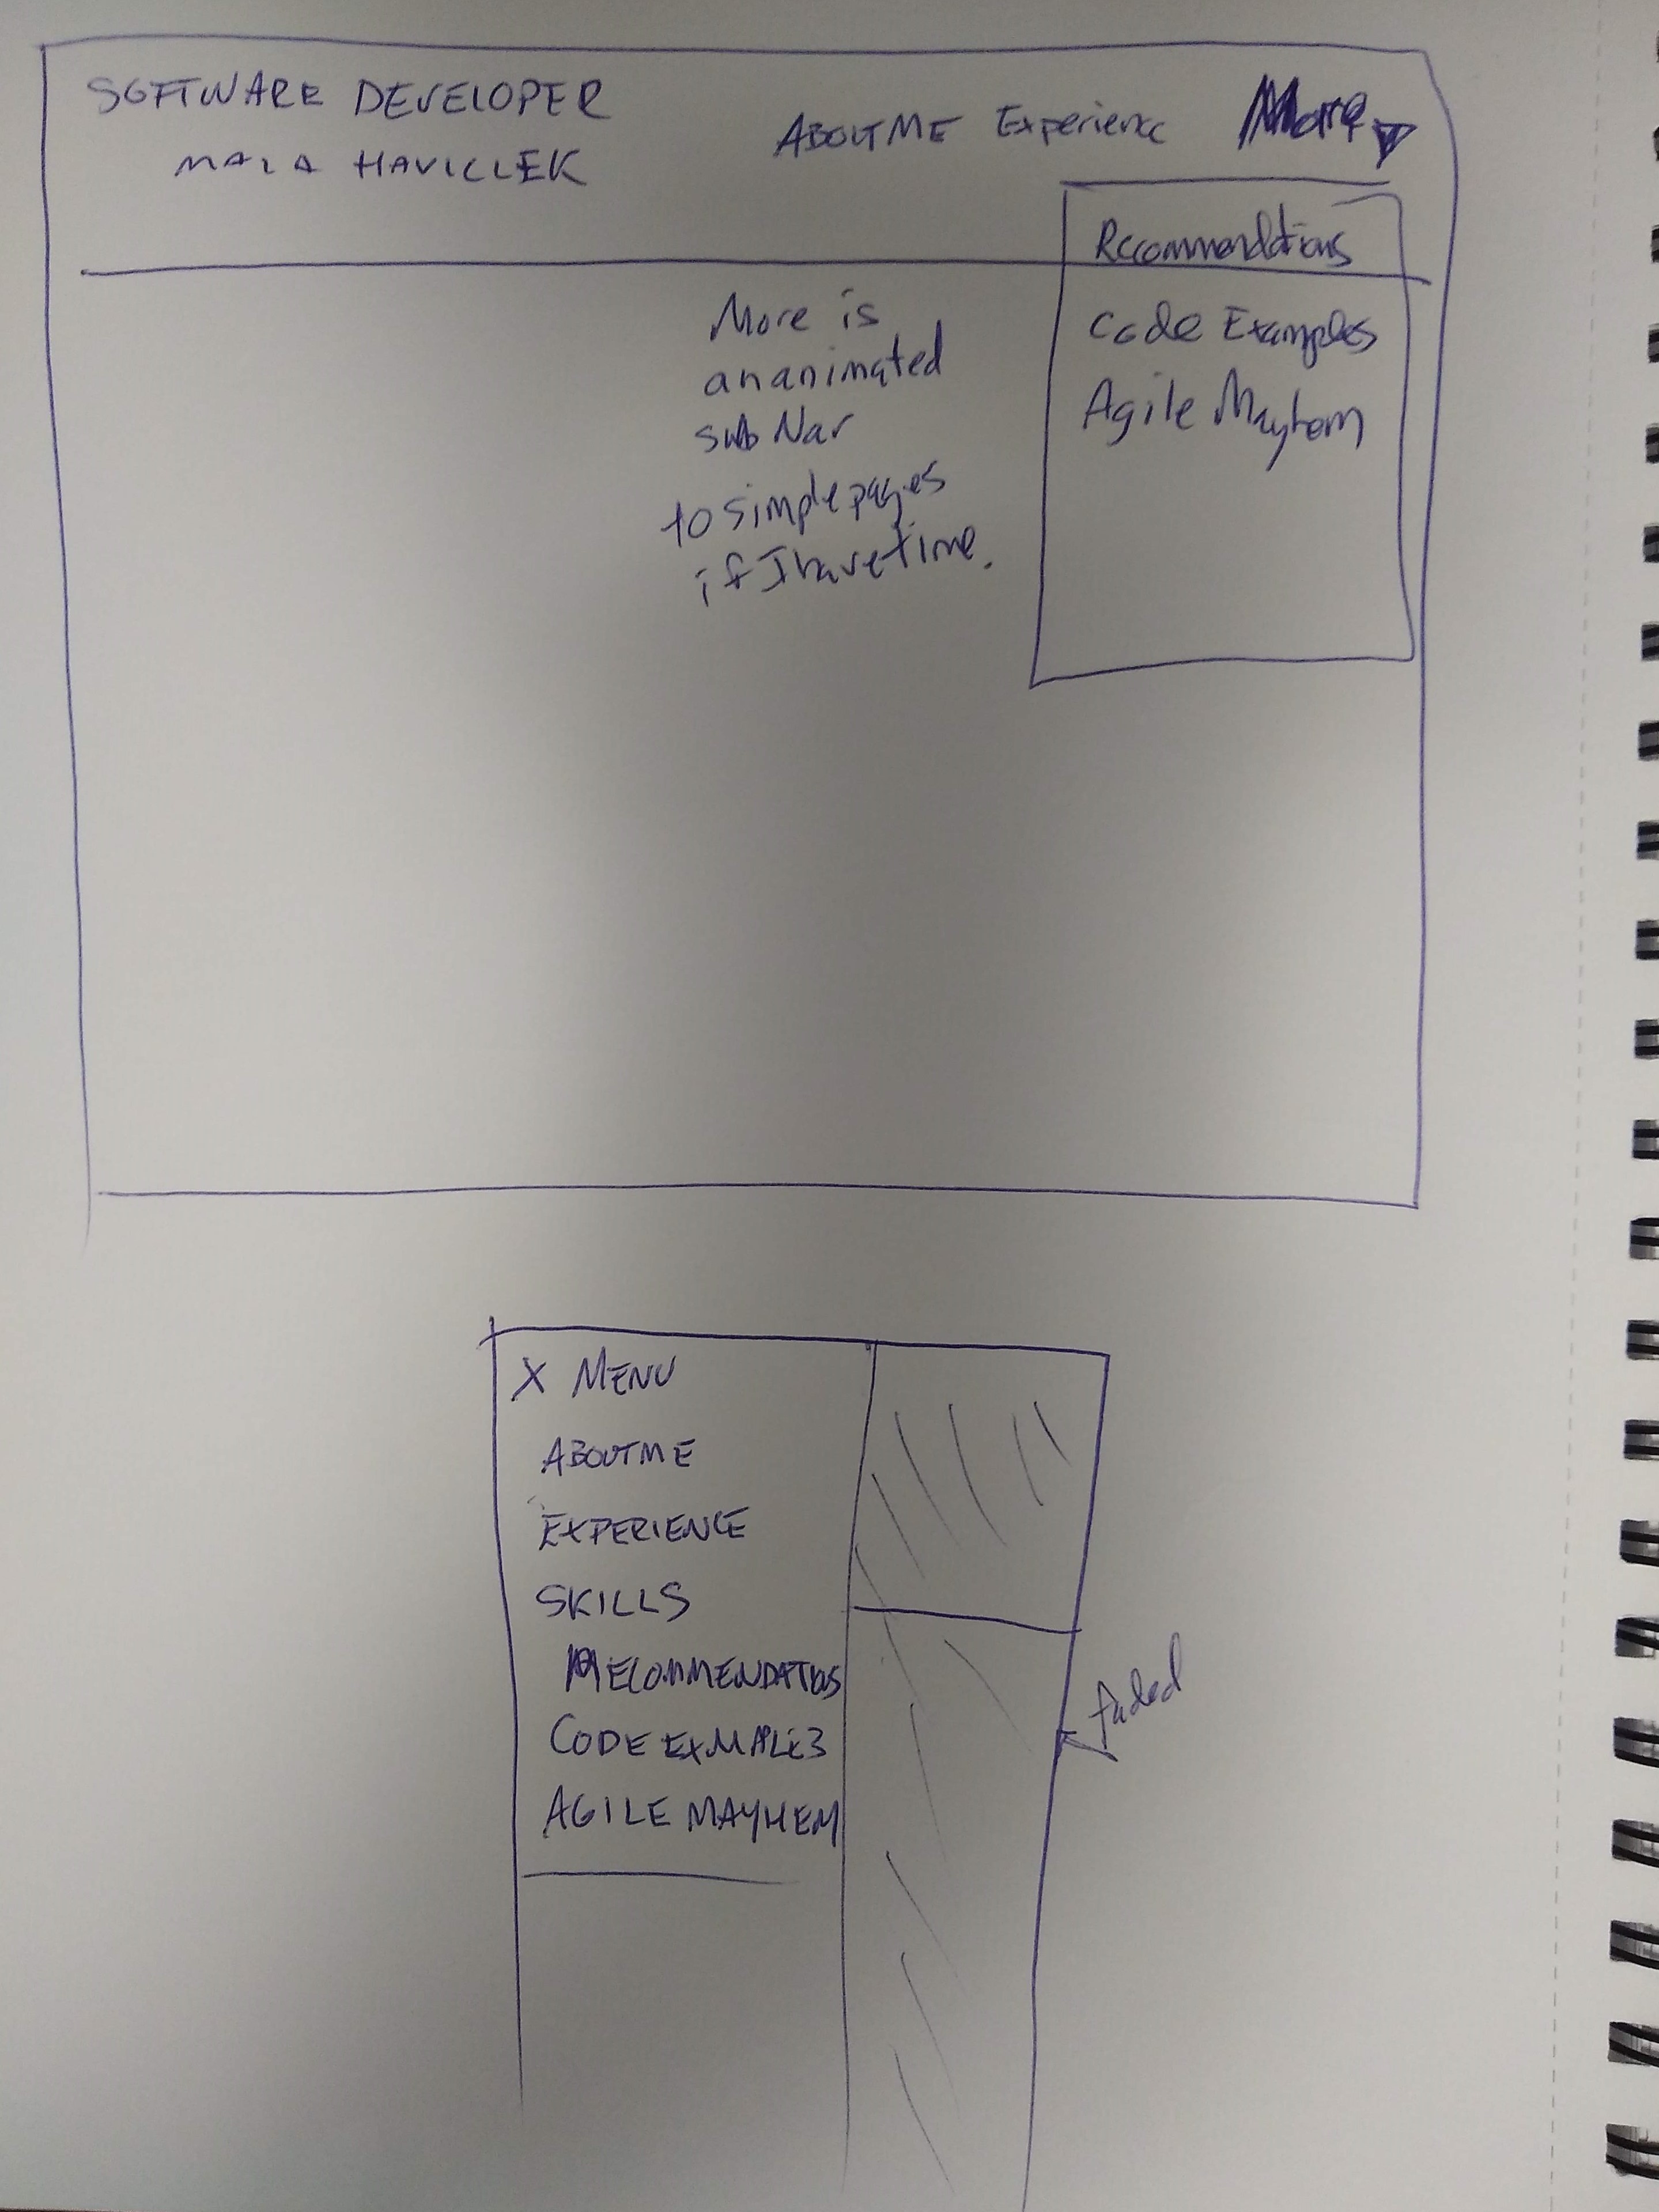 SOFTWARE DEVELOPER
MALA HAVICLEK
ABOUT ME Experience More
Recommendations
Code Examples
Agile Mayhem
More is
an animated
sub Nav
to simple pages
if I have time.
X MENU
ABOUT ME
EXPERIENCE
SKILLS
RECOMMENDATIOS
CODE EXMAPLES
AGILE MAYHEM
faded